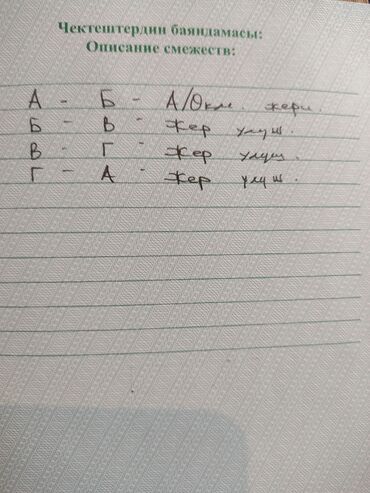 Чектештердин баяндамасы:
Описание смежеств:
А - Б - А/Окм. жери.
Б - В - Жер улуш.
В - Г - Жер улуш.
Г - А - Жер улуш.